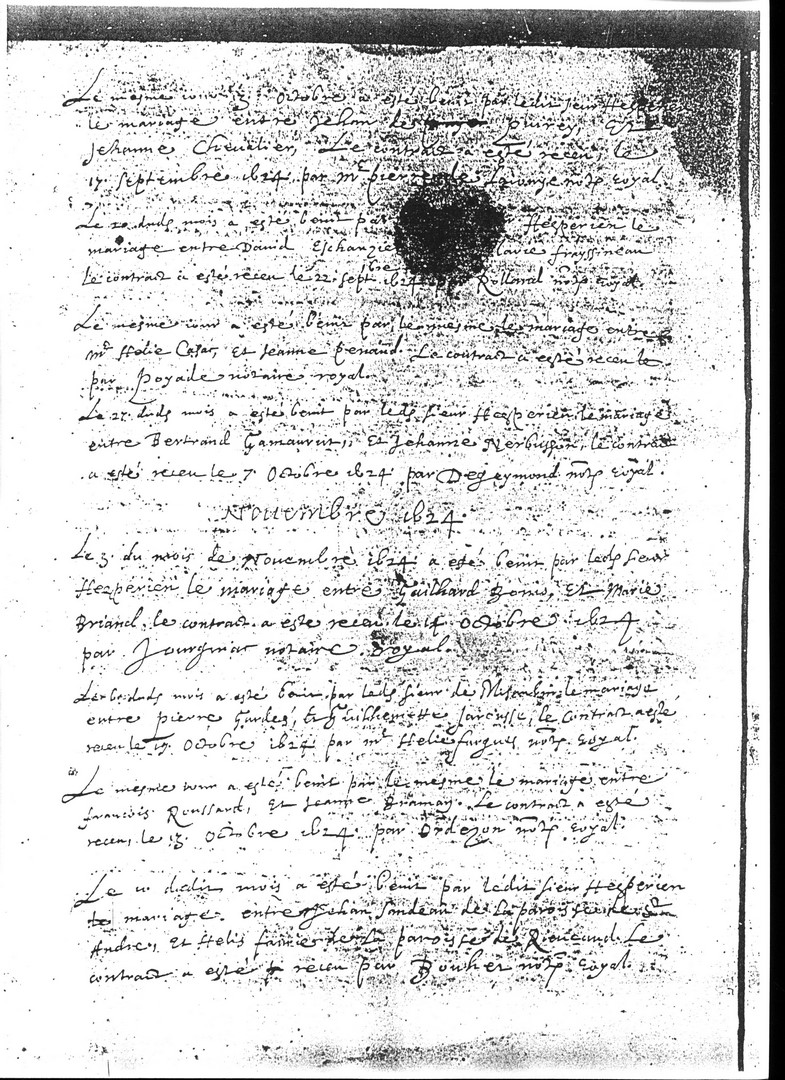 Le mesme iour 13. Octobre a esté benit par ledit sieur Hesperien
le mariage entre Jehan des Puirey, Et
Jehanne Cheualier, Le contract a esté receu le
17. septembre 1624. par mᵉ pierre de notʳᵉ royal
Le 20. duds mois a esté benit par Hesperien le
mariage entre Dauid Eschanzie frayssineau
Le contract a esté receu le 22. septbre 1624. par Rolland notʳᵉ royal.
Le mesme iour a esté benit par le mesme le mariage entre
mᵉ Helie Casac, Et Jeanne penaud. Le contract a esté receu le
par Poyade notaire royal.
Le 27. duds mois a esté benit par leds sieur Hesperien le mariage
entre Bertrand, Et Jehanne, le contract
a esté receu le 7. Octobre 1624. par Degeymond notʳᵉ royal.
Nouembre 1624.
Le 3. du mois de Nouembre 1624 a esté benit par leds sieur
Hesperien le mariage entre Guilhard Bonis, Et Marie
Briand. le contract a esté receu le 14 Octobre 1624
par Jourgniac notaire Royal.
Le duds mois a esté benit par leds sieur de le mariage
entre pierre Gardes, Et Guilhemette Jarousse, le contract a esté
receu le 19. Octobre 1624 par mᵉ Helie fargues notʳᵉ royal.
Le mesme iour a esté benit par le mesme le mariage entre
françois Roussard, Et Jeanne Bramay. Le contract a esté
receu le 13. Octobre 1624. par Ordezon notʳᵉ royal.
Le 10 dudit mois a esté benit par ledit sieur Hesperien
le mariage entre Jehan sandeau de la paroisse de
Andre, Et Helis faure de la paroisse de Le
contract a esté receu par Bouhet notʳᵉ royal.